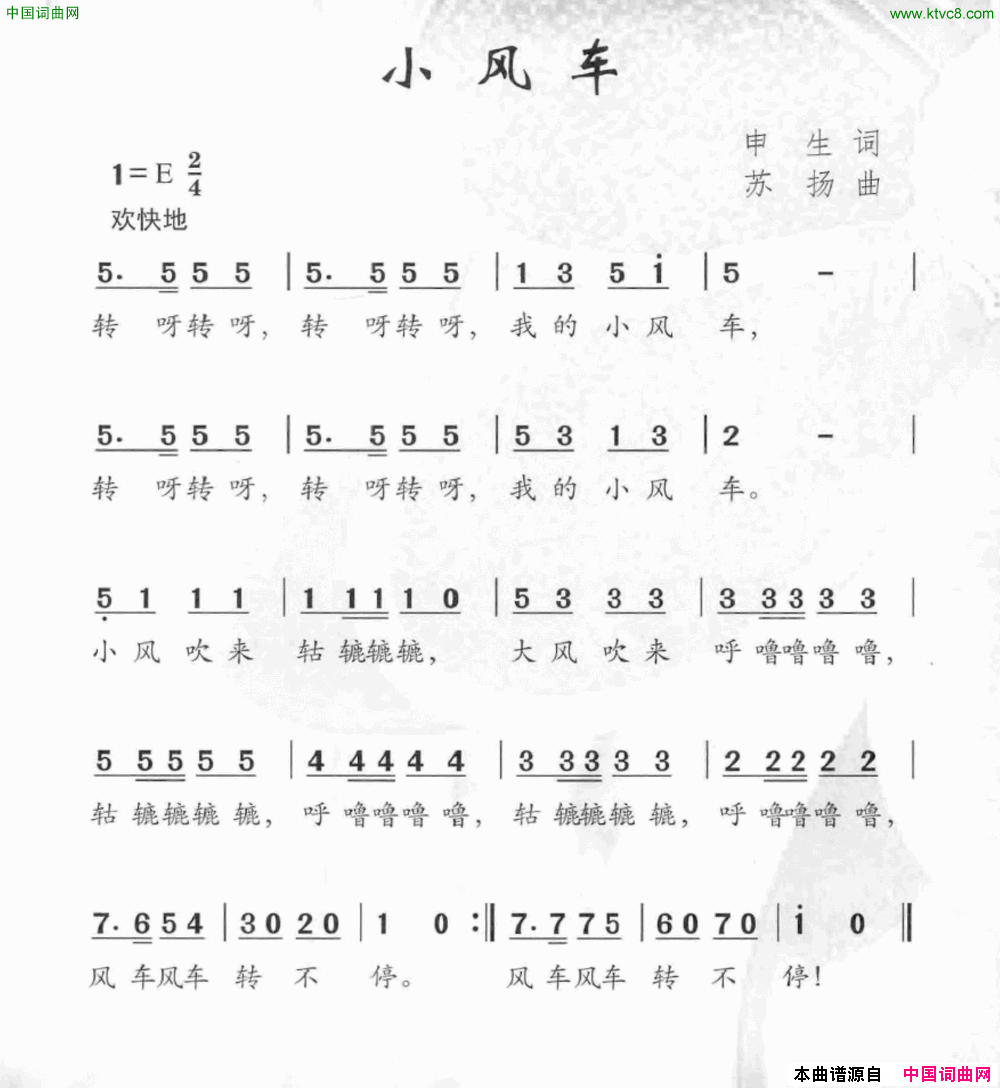 中国词曲网 www.ktvc8.com
小风车
申 生 词
1=E 2/4
苏 扬 曲
欢快地
5. 5 5 5 | 5. 5 5 5 | 1 3 5 i | 5 – |
转 呀转呀, 转 呀转呀, 我的小风 车,
5. 5 5 5 | 5. 5 5 5 | 5 3 1 3 | 2 – |
转 呀转呀, 转 呀转呀, 我的小风 车。
5̣ 1 1 1 | 1 1 1 1 0 | 5 3 3 3 | 3 3 3 3 3 |
小风 吹来 轱辘辘辘, 大风 吹来 呼噜噜噜噜,
5 5 5 5 5 | 4 4 4 4 4 | 3 3 3 3 3 | 2 2 2 2 2 |
轱辘辘辘辘, 呼噜噜噜噜, 轱辘辘辘辘, 呼噜噜噜噜,
7. 6 5 4 | 3 0 2 0 | 1 0 :‖ 7. 7 7 5 | 6 0 7 0 | i 0 ‖
风 车风车 转 不 停。 风 车风车 转 不 停!
本曲谱源自 中国词曲网